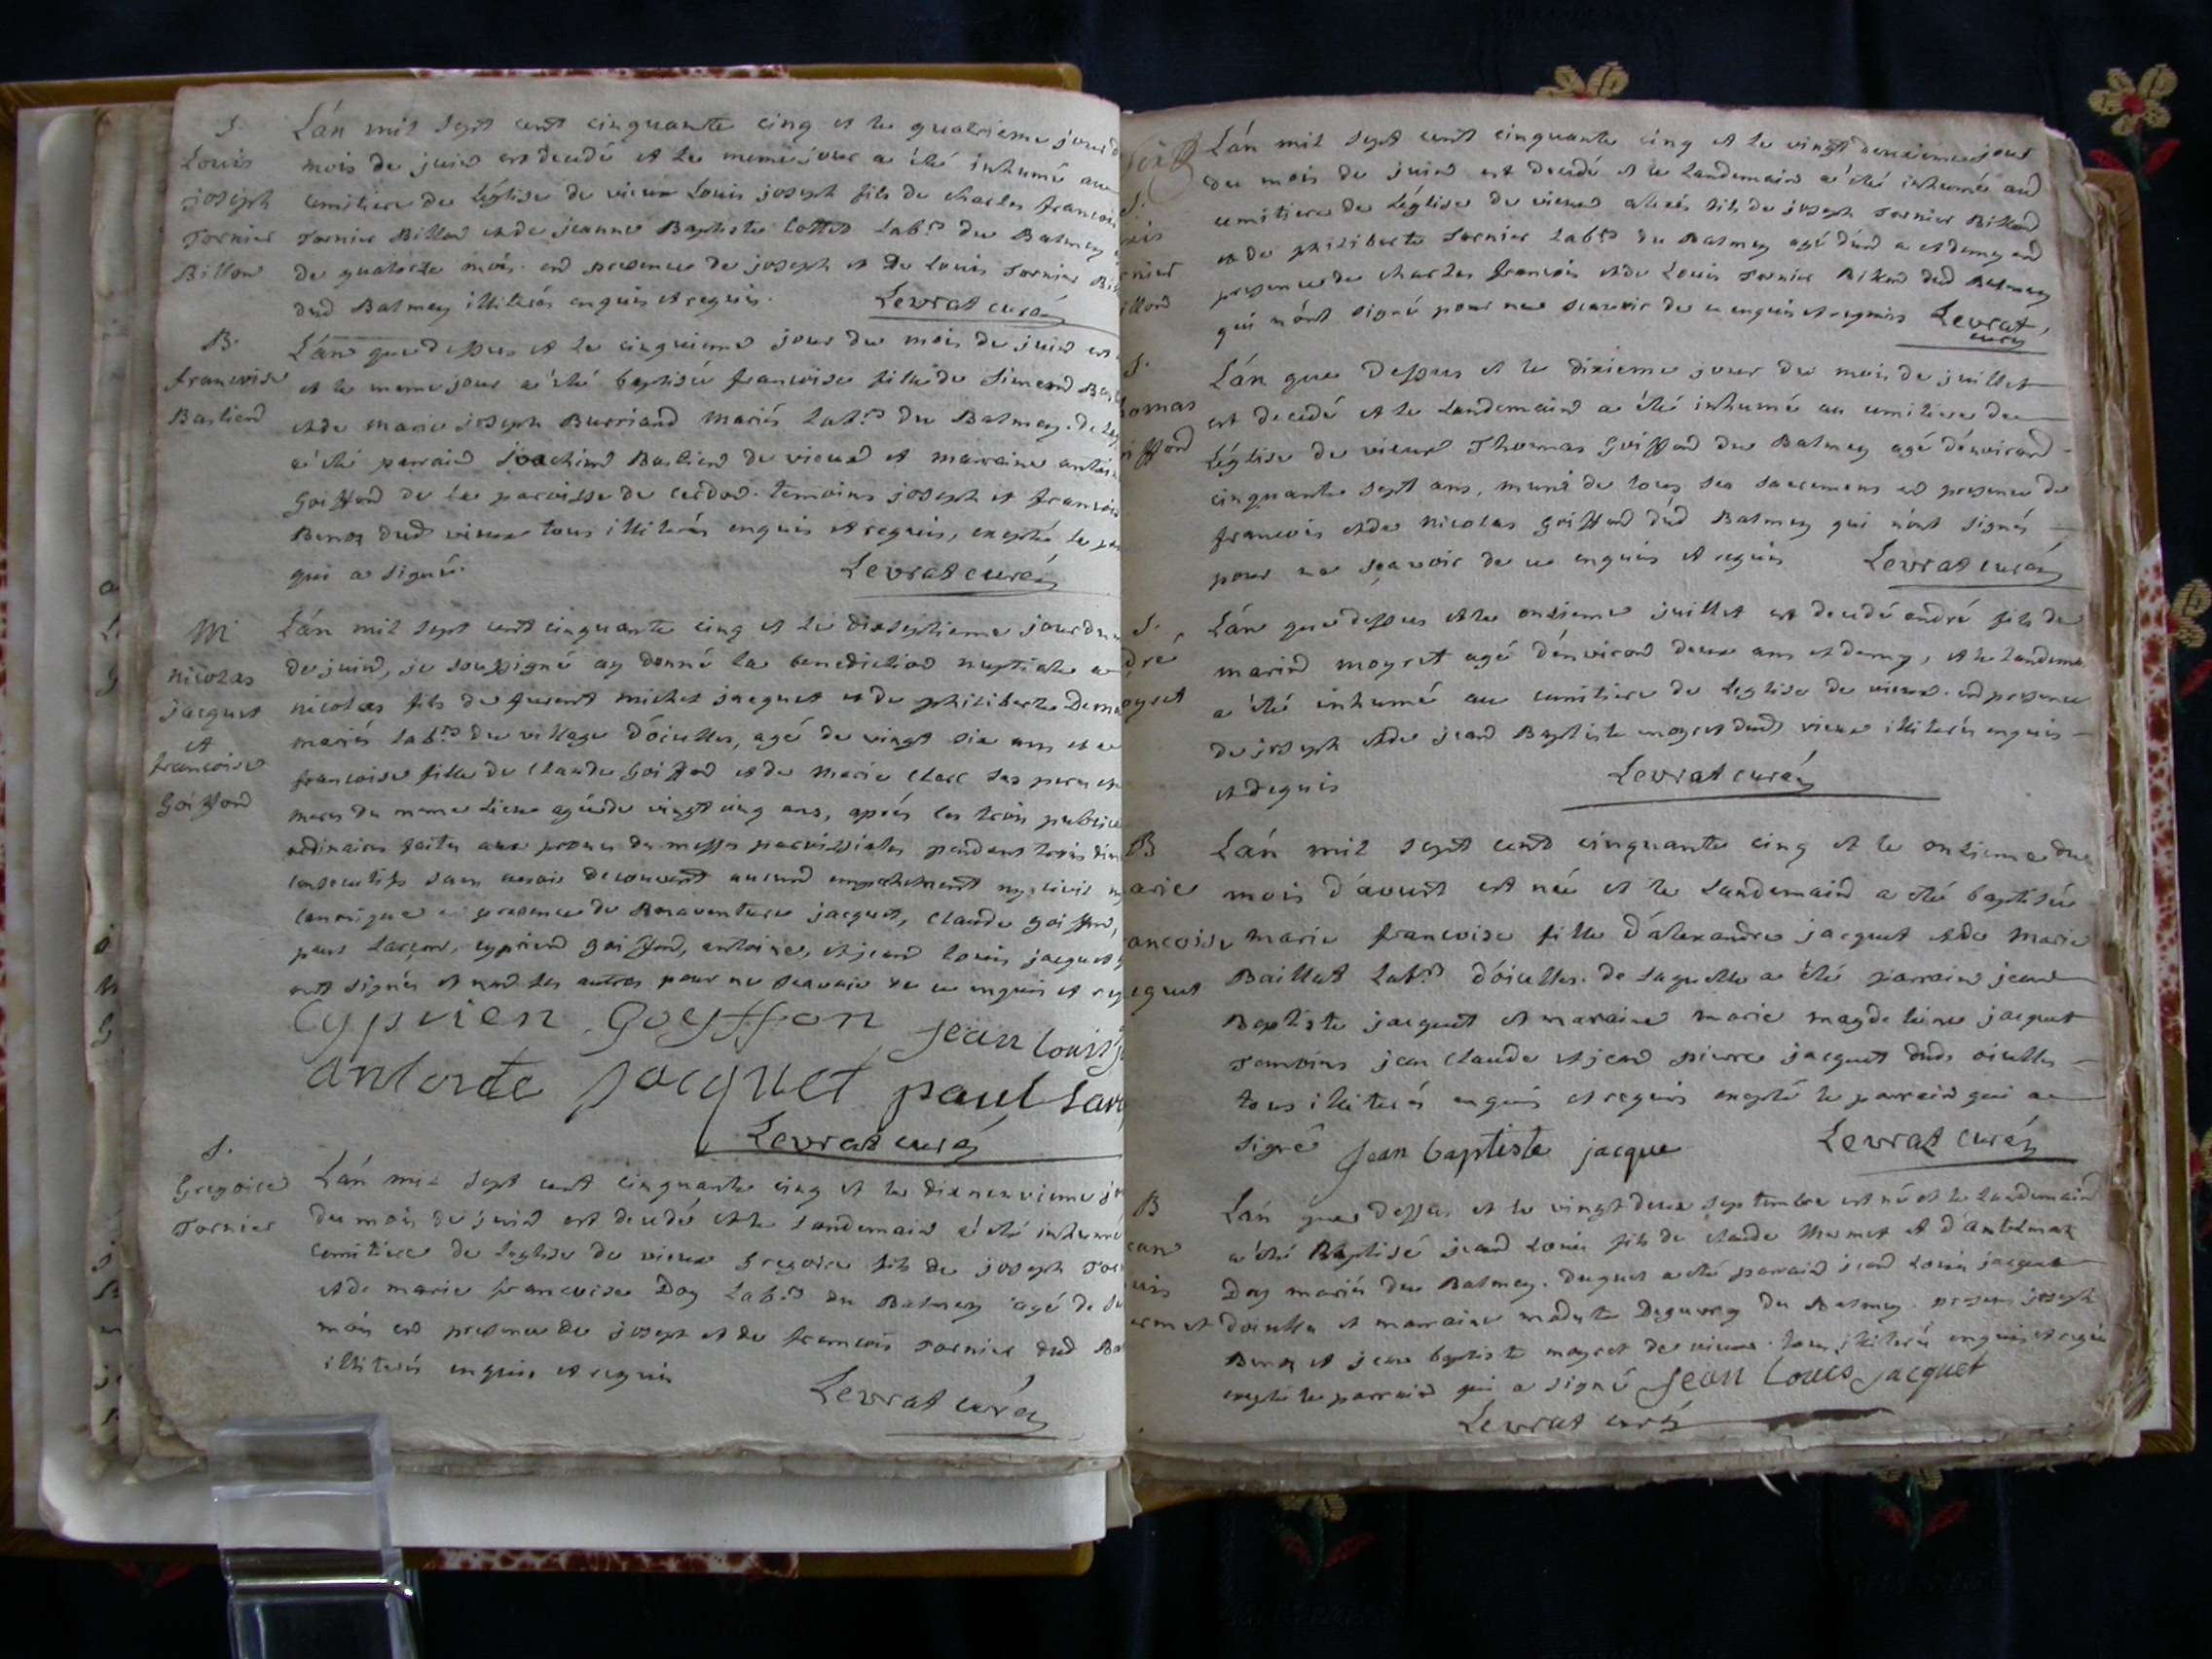 S.
Louis
joseph
Tornier
Billon
Lán mil sept cent cinquante cinq et le quatrieme jour d
mois de juin est decedé et le meme jour a été inhumé au
cemitiere de Léglise de vieux Louis joseph fils de charles francois
Tornier Billon et de jeanne Baptiste Cottet Labrs du Balmey
de quatorze mois. en presence de joseph et De Louis Tornier Bill
dud Balmey illiterés enquis et requis. Levrat curé
B.
francoise
Bastien
Lán que dessus et le cinquieme jour du mois de juin est
et le meme jour a été baptisée francoise fille de Simeond Bas
et de marie joseph Burriand mariés Labrs du Balmey. de la
a été parrain joachim Bastien de vieux et marraine antoi
Goiffond de la paroisse de cerdon. temoins joseph et francois
Benoz dud vieux tous illiterés enquis et requis, excepté le pa
qui a signé. Levrat curé
M
nicolas
jacquet
et
francoise
Goiffond
Lán mil sept cent cinquante cinq et le dixseptieme jour du
de juin, je soussigné ay donné la benediction nuptiale a
nicolas fils de furent michel jacquet et de philiberte Dema
mariés labrs du village dóiselles, agé de vingt six ans et a
francoise fille de Claude Goiffond et de Marie Clerc ses peres et
meres du meme Lieu agée de vingt cinq ans, aprés les trois public
ordinaires faites aux prones des messes paroissiales pendant trois dim
consecutifs sans avoir decouvert aucun empechement ny civil ny
Canonique en presence de Bonaventure jacquet, Claude goiffond,
paul Larçon, cyprien goiffond, antoine, et jean Louis jacquet
ont signés et non les autres pour ne scavoir de ce enquis et req
Cyprien goyffon jean louis j
antoine jacquet paul Lar
Levrat curé
S.
Gregoire
Tornier
Lán mil sept cent cinquante cinq et le dixneuvieme jo
du mois de juin est decedé et le Landemain a été inhumé
Cemitiere de Leglise de vieux Gregoire fils de joseph Tor
et de marie francoise Doy Labrs du Balmey agé de
mois en presence de joseph et de francois Tornier dud Bal
illiterés enquis et requis
Levrat curé
S.
xis
rnier
illond
Lán mil sept cent cinquante cinq et le vingt deuxieme jour
du mois de juin est decedé et le Landemain a été inhumé au
cemitiere de Léglise de vieux alexis fils de joseph Tornier Billond
et de philiberte Tornier Labrs du Balmey agé dún a et demy en
presence de charles francois et de Louis Tornier Billond dud Balmey
qui nónt signé pour ne scavoir de ce enquis et requis Levrat
curé
S.
homas
iffond
Lán que Dessus et le dixieme jour du mois de juillet
est decedé et le Landemain a été inhumé au cemitiere de
Léglise de vieux Thomas Goiffond du Balmey agé dénvirond
cinquante sept ans, muni de tous ses sacremens en presence de
francois et de Nicolas Goiffond dud Balmey qui nónt signés
pour ne sçavoir de ce enquis et requis Levrat curé
S.
dré
oyret
Lán que dessus et le onzieme juillet est decedé andré fils de
marin moyret agé dénvirond deux ans et demy, et le landema
a été inhumé au cemitiere de Leglise de vieux. en presence
de joseph et de jean Baptiste moyret dud vieux illiterés enquis
et requis
Levrat curé
B
arie
ancoise
cquet
Lán mil sept cent cinquante cinq et le onzieme du
mois dávoust est née et le Landemain a été baptisée
marie francoise fille dálexandre jacquet et de Marie
Baillat Labrs dóiselles. de laquelle a été parrain jean
Baptiste jacquet et maraine marie magdeleine jacquet
Temoins jean claude et jean pierre jacquet dud oiselles
tous illiterés enquis et requis excepté le parrain qui a
signé jean baptiste jacque Levrat curé
B
ean
uis
ermet
Lán que dessus et le vingt deux septembre est né et le landemain
a été Baptisé jean Louis fils de claude Mermet et dántelmaz
Doy mariés du Balmey. duquel a été parrain jean Louis jacquet
doiselles et marraine modeste Deguerry du Balmey. presens joseph
Benoz et jean baptiste moyret de vieux. tous illiterés enquis et requis
excepté le parrain qui a signé jean Louis jacquet
Levrat curé